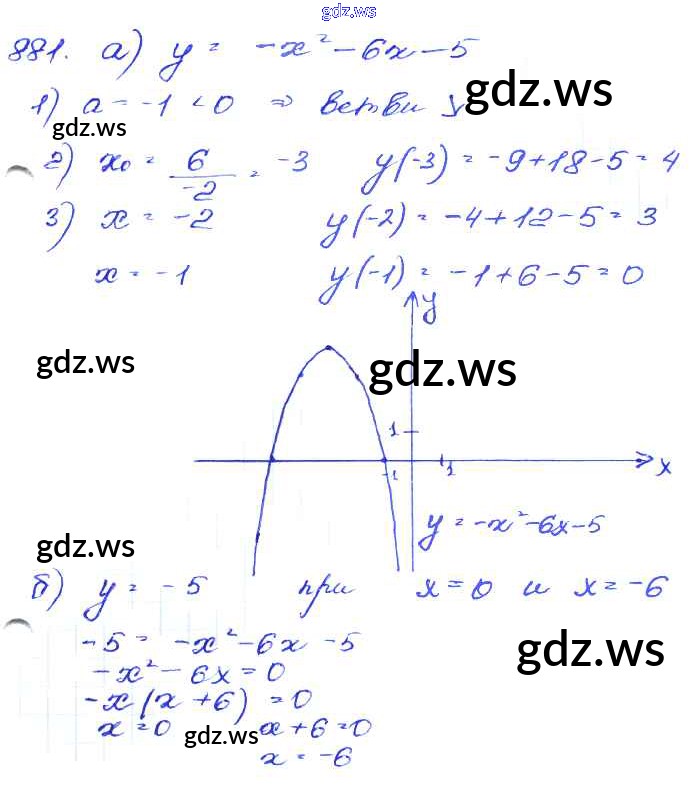 gdz.ws
881. а) y = -x² - 6x - 5
1) a = -1 < 0 ⇒ ветви ↓
gdz.ws
gdz.ws
2) x₀ = 6/-2 = -3 y(-3) = -9+18-5 = 4
3) x = -2 y(-2) = -4+12-5 = 3
x = -1 y(-1) = -1+6-5 = 0
y
gdz.ws
gdz.ws
1
-1 1 x
y = -x² - 6x - 5
gdz.ws
б) y = -5 при x = 0 и x = -6
-5 = -x² - 6x - 5
gdz.ws
-x² - 6x = 0
-x(x + 6) = 0
x = 0 x + 6 = 0
gdz.ws
x = -6